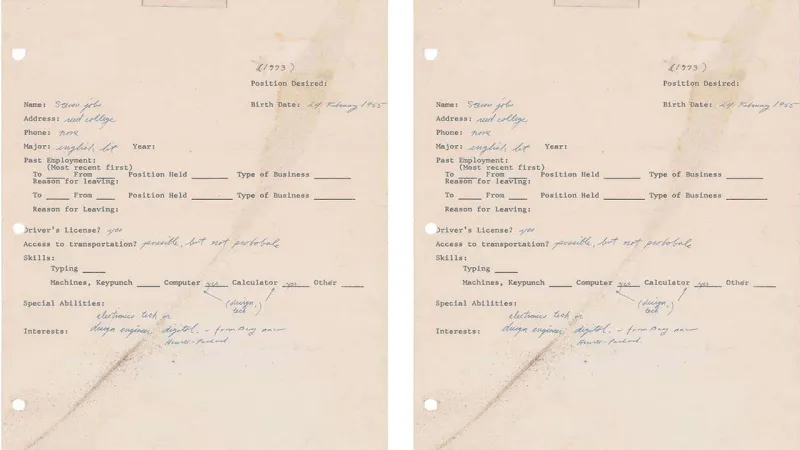 (1973)
Position Desired:
Name: Steven jobs Birth Date: 24 February 1955
Address: reed college
Phone: none
Major: english lit Year:
Past Employment:
(Most recent first)
To ____ From ____ Position Held ____ Type of Business ____
Reason for leaving:
To ____ From ____ Position Held ____ Type of Business ____
Reason for Leaving:
Driver's License? yes
Access to transportation? possible, but not probable
Skills:
Typing ____
Machines, Keypunch ____ Computer yes Calculator yes Other ____
(design,
tech)
Special Abilities:
electronics tech or
Interests: design engineer digital. – from Bay near
Hewitt-Packard
(1973)
Position Desired:
Name: Steven jobs Birth Date: 24 February 1955
Address: reed college
Phone: none
Major: english lit Year:
Past Employment:
(Most recent first)
To ____ From ____ Position Held ____ Type of Business ____
Reason for leaving:
To ____ From ____ Position Held ____ Type of Business ____
Reason for Leaving:
Driver's License? yes
Access to transportation? possible, but not probable
Skills:
Typing ____
Machines, Keypunch ____ Computer yes Calculator yes Other ____
(design,
tech)
Special Abilities:
electronics tech or
Interests: design engineer digital. – from Bay near
Hewitt-Packard